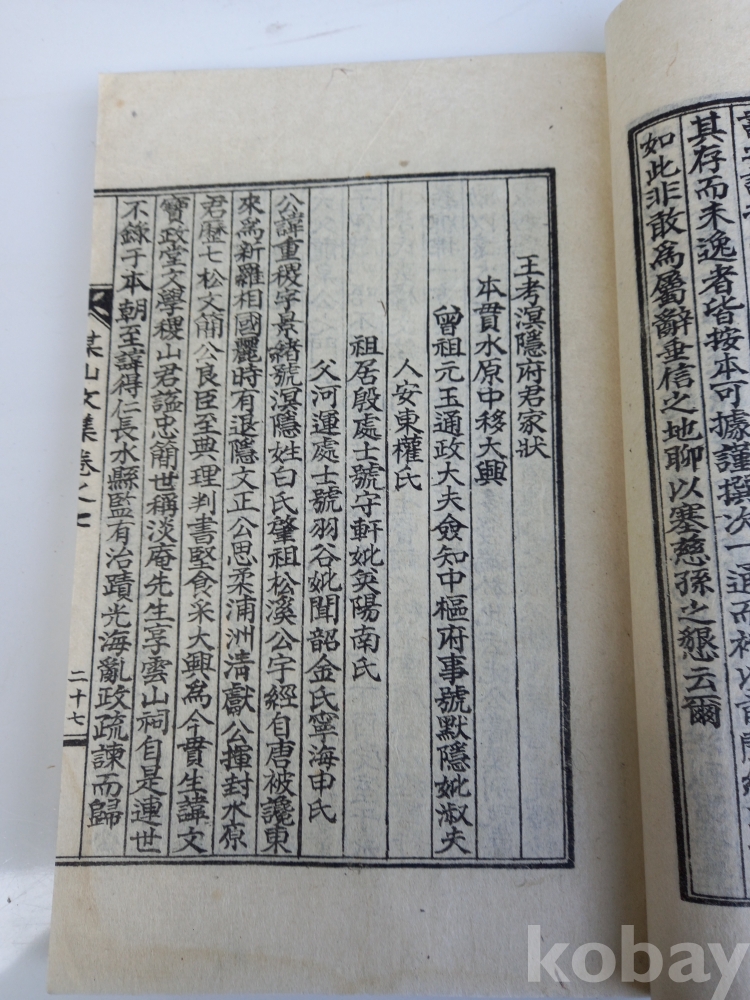 其存而未逸者皆按本可據謹撰次一通而
如此非敢爲屬辭垂信之地聊以塞慈孫之懇云爾
王考溟隱府君家狀
本貫水原中移大興
曾祖元玉通政大夫僉知中樞府事號默隱妣淑夫
人安東權氏
祖居殷處士號守軒妣英陽南氏
父河運處士號羽谷妣聞韶金氏寧海申氏
公諱重稷字景緖號溟隱姓白氏肇祖松溪公宇經自唐被讒東
來爲新羅相國麗時有退隱文正公思柔浦洲淸獻公揮封水原
君歷七松文簡公良臣至典理判書堅食采大興爲今貫生諱文
寶政堂文學稷山君諡忠簡世稱淡庵先生享雲山祠自是連世
不錄于本朝至諱得仁長水縣監有治蹟光海亂政疏諫而歸
某山文集卷之七
二十七
kobay